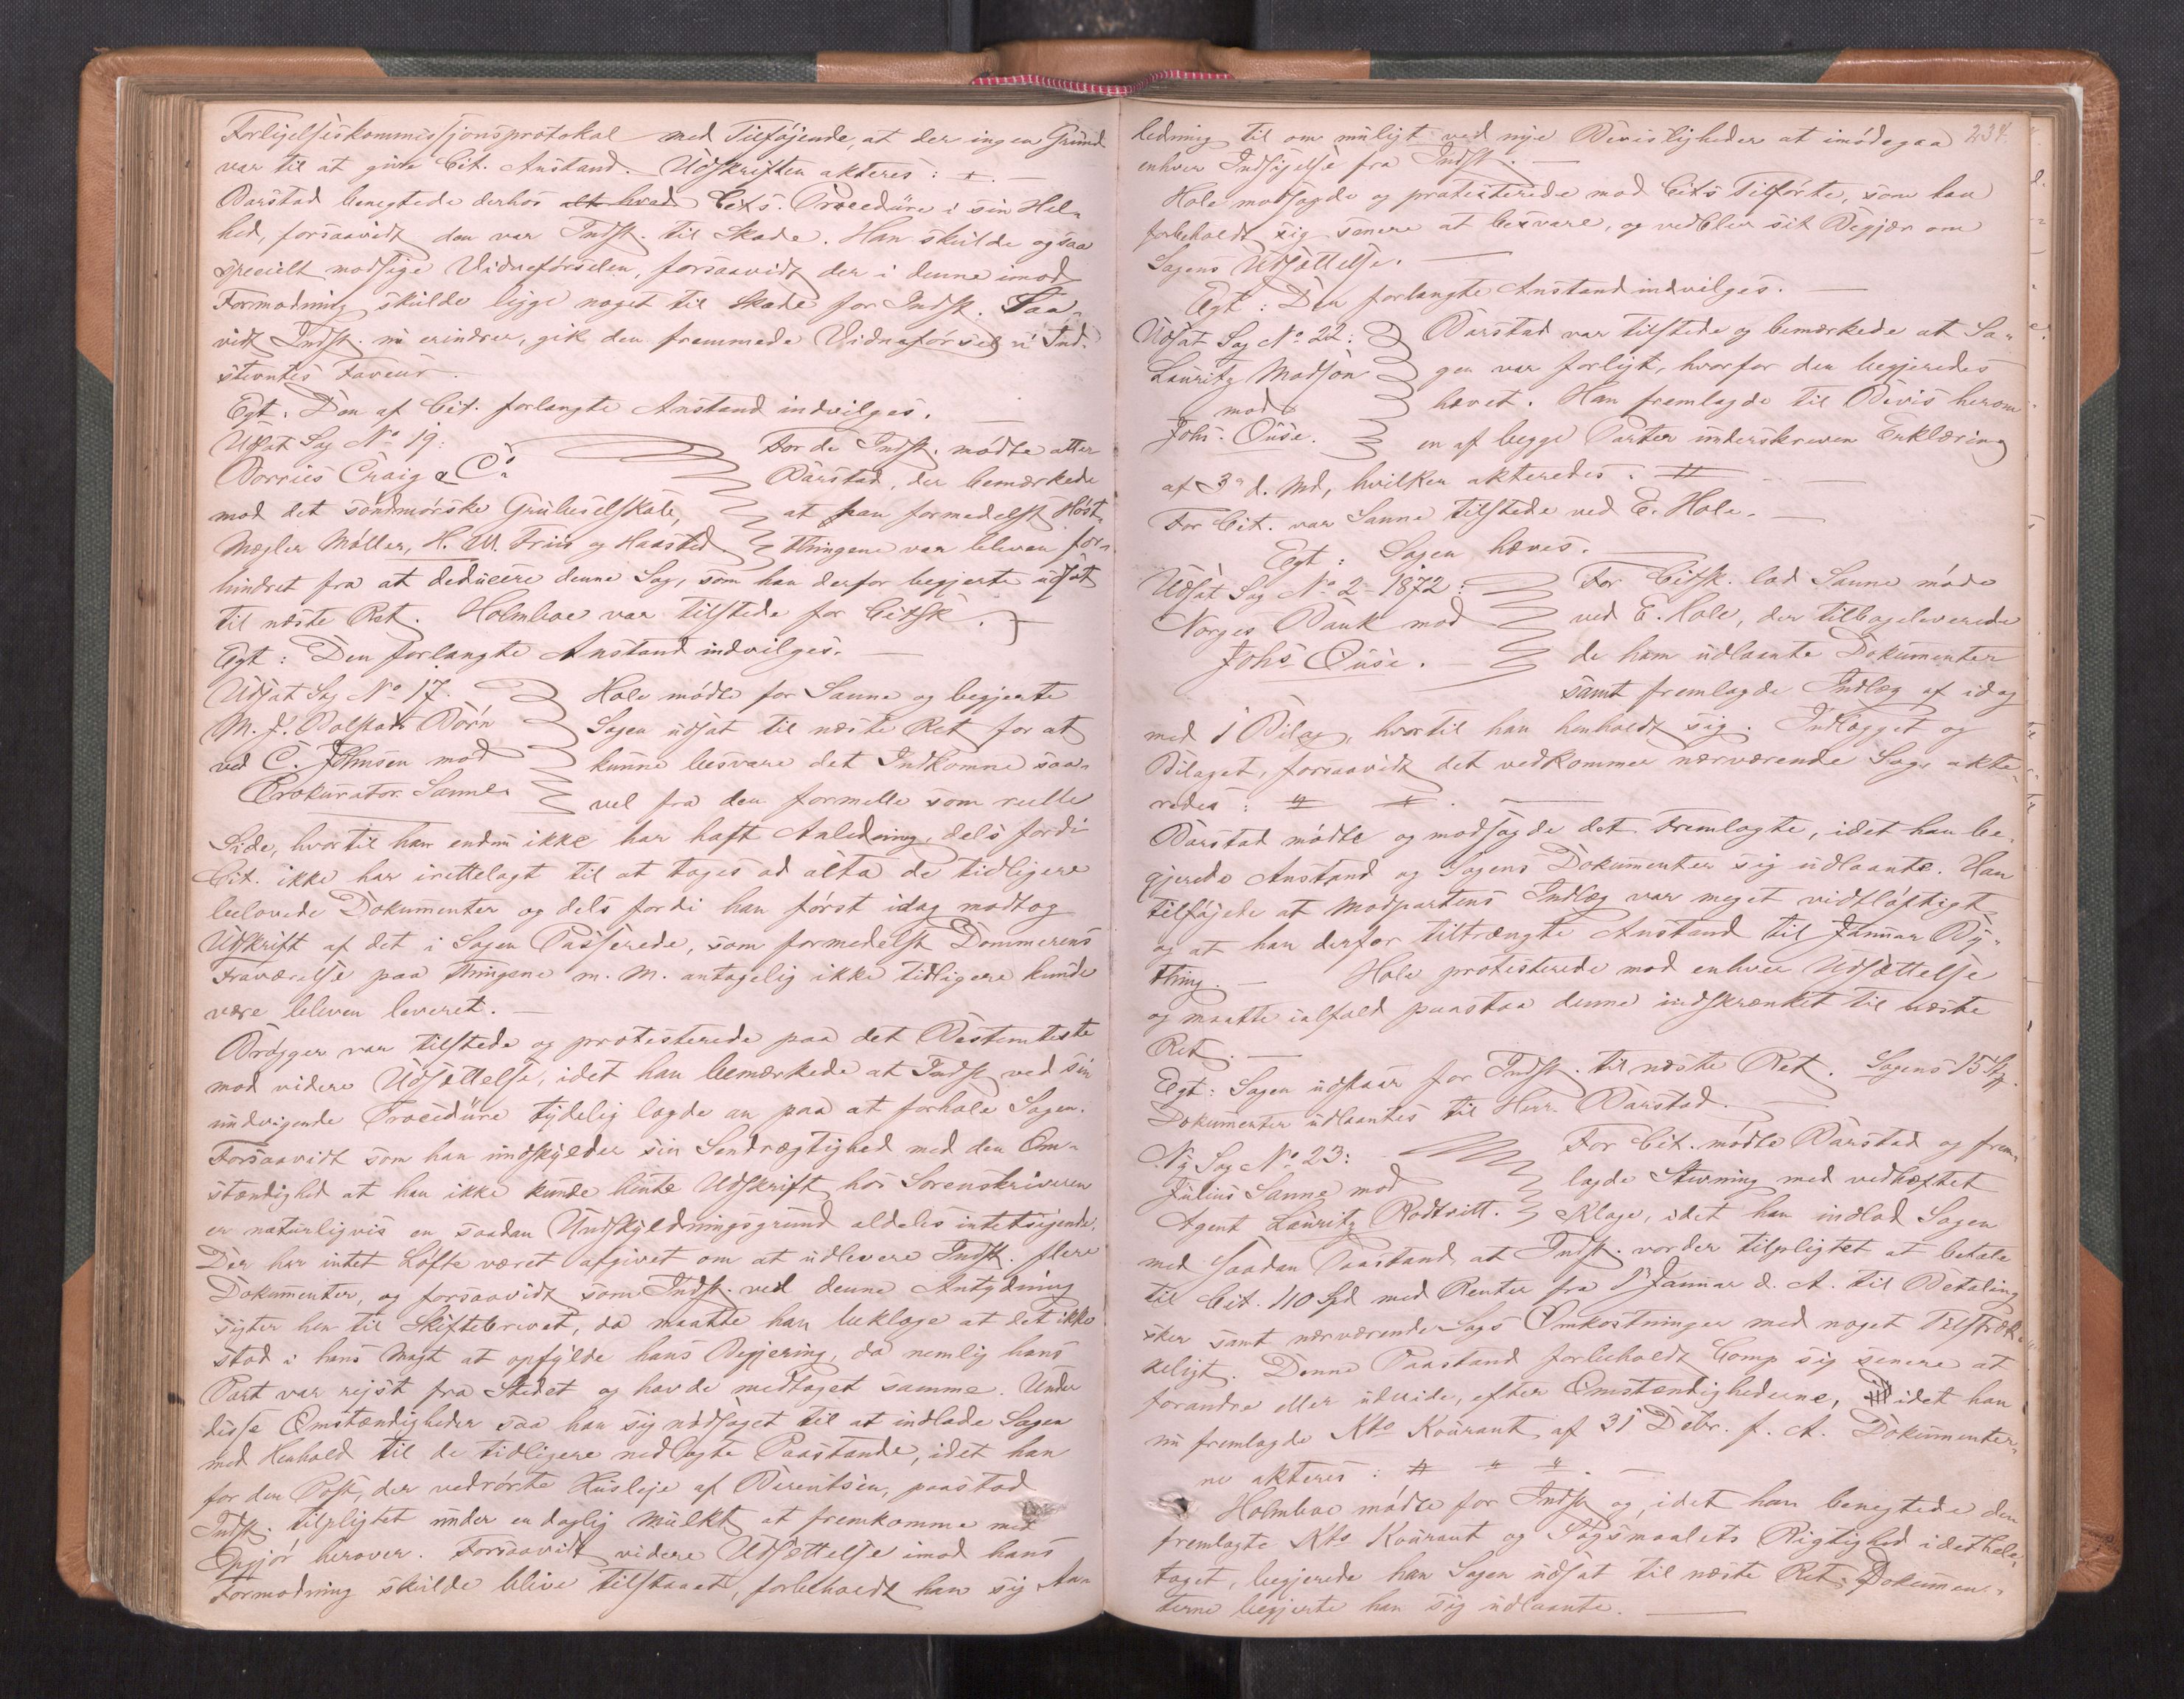 Forligelseskommissjonsprotokol med Tilføjende, at der ingen Grund
var til at give Cit. Anstand. Udskriften akteres: #. —
Barstad benegtede derhos alt hvad Cits. Procedure i sin Hel-
hed, forsaavidt den var Indst. til Skade. Han skulde ogsaa
specielt modsige Vidneførselen, forsaavidt der i denne imod
Formodning skulde ligge noget til Skade for Indst. Saa-
vidt Indst. nu erindrer, gik den fremmede Vidneførsel i Ind-
stevntes Faveur.
Egt. Den af Cit. forlangte Anstand indvilges.
Udsat Sag No 19:
Borries Craig & Co
mod det søndmørske Grubeselskab,
Mægler Møller, H. M. Friis og Haasted.
For de Indst. mødte atter
Barstad, der bemærkede
at han formedelst Høst-
thingene var bleven for-
hindret fra at deducere denne Sag, som han derfor begjerte udsat
til næste Ret. Holmboe var tilstede for Citsk.
Egt: Den forlangte Anstand indvilges. —
Udsat Sag No 17.
M. J. Børn
ved C. Johnsen mod
Prokurator Sanne.
Hole mødte for Sanne og begjerte
Sagen udsat til næste Ret for at
kunne besvare det Indkomne saa-
vel fra den formelle som reelle
Side, hvortil han endnu ikke har haft Anledning, dels fordi
Cit. ikke har irettelagt til at tages ad akta de tidligere
belovede Dokumenter og dels fordi han først idag modtog
Udskrift af det i Sagen Passerede, som formedelst Dommerens
Fraværelse paa Thingene m. M. antagelig ikke tidligere kunde
være bleven leveret. —
Brøgger var tilstede og protesterede paa det Bestemteste
mod videre Udsættelse, idet han bemærkede at Indst. ved sin
undvigende Procedure tydelig lagde an paa at forhale Sagen.
Forsaavidt som han undskylder sin Sendrægtighed med den Om-
stændighed at han ikke kunde hente Udskrift hos Sorenskriveren
er naturligvis en saadan Undskyldningsgrund aldeles intetsigende.
Der har intet Løfte været afgivet om at udlevere Indst. flere
Dokumenter, og forsaavidt som Indst. ved denne Antydning
sigter hen til Skiftebrevet, da maatte han beklage at det ikke
stod i hans Magt at opfylde hans Begjering, da nemlig hans
Part var rejst fra Stedet og havde medtaget samme. Under
disse Omstændigheder saa han sig nødsaget til at indlade Sagen
med Henhold til de tidligere nedlagte Paastande, idet han
for den Post, der vedrørte Husleje af Berentsen, paastod
Indst. tilpligtet under en daglig Mulkt at fremkomme med
Opgjør herover. Forsaavidt videre Udsættelse imod hans
Formodning skulde blive tilstaaet, forbeholdt han sig An-
234.
ledning til om muligt ved nye Bevisligheder at imødegaa
enhver Indsigelse fra Indst. —
Hole modsagde og protesterede mod Cits Tilførte, som han
forbeholdt sig senere at besvare, og vedblev sit Begjær om
Sagens Udsættelse. —
Egt: Den forlangte Anstand indvilges. —
Udsat Sag No 22:
Lauritz Madsøn
mod
Johs. Ouse.
Barstad var tilstede og bemærkede at Sa-
gen var forligt, hvorfor den begjeredes
hævet. Han fremlagde til Bevis herom
en af begge Parter underskreven Erklæring
af 3 d. Md, hvilken akteredes: #
For Cit. var Sanne tilstede ved E. Hole. —
Egt: Sagen hæves. —
Udsat Sag No 2 - 1872:
Norges Bank mod
Johs Ouse. —
For Citsk. lod Sanne møde
ved E. Hole, der tilbageleverede
de ham udlaante Dokumenter
samt fremlagde Indlæg af idag
med 1 Bilag, hvortil han henholdt sig. Indlægget og
Bilaget, forsaavidt det vedkommer nærværende Sag, akte-
redes: # #. —
Barstad mødte og modsagde det Fremlagte, idet han be-
gjerede Anstand og Sagens Dokumenter sig udlaante. Han
tilføjede at Modpartens Indlæg var meget vidtløftigt
og at han derfor tiltrængte Anstand til Januar By-
thing. — Hole protesterede mod enhver Udsættelse
og maatte ialfald paastaa denne indskrænket til næste
Ret. —
Egt: Sagen udstaar for Indst. til næste Ret. Sagens 15
Dokumenter udlaantes til Herr Barstad. —
Ny Sag No 23:
Julius Sanne mod
Agent Lauritz Rodtvitt.
For Cit. mødte Barstad og frem-
lagde Stevning med vedhæftet
Klage, idet han indlod Sagen
med saadan Paastand, at Indst. vorder tilpligtet at betale
til Cit. 110 Spd med Renter fra 1 Januar d. A. til Betaling
sker samt nærværende Sags Omkostninger med noget Tilstræk-
keligt. Denne Paastand forbeholdt Comp sig senere at
forandre eller udvide, efter Omstændighederne, idet han
nu fremlagde Kto Kourant af 31 Debr. f. A. Dokumenter-
ne akteres: # " ". —
Holmboe mødte for Indst. og, idet han benegtede den
fremlagte Kto Kourant og Søgsmaalets Rigtighed i det hele
taget, begjerede han Sagen udsat til næste Ret. Dokumen-
terne begjerte han sig udlaante. —